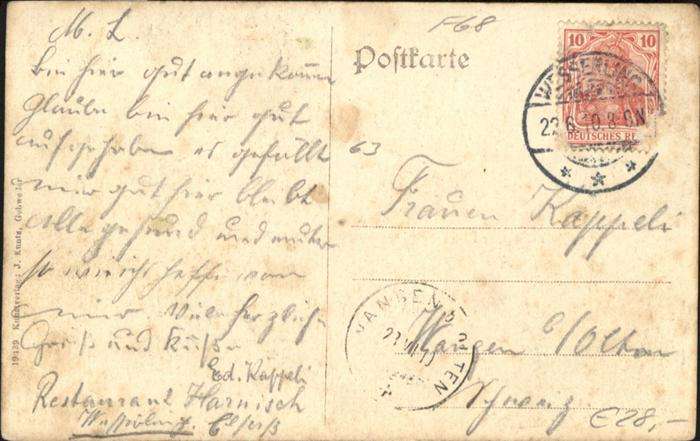 M. L.
bin hier gut angekommen
glaube bin hier gut
aufgehoben es gefällt
mir gut hier bleibt
alle gesund und
so wie ich hoffe von
mir viele herzliche
Grüße und Küsse
Ed. Kappeli
Restaurant Harnisch
Wesserling Elsass
19439 Kunstverlag: J. Kuntz, Gebweiler
F68
Postkarte
10 10
DEUTSCHES REICH
WESSERLING
22.6.10. 8-9N.
63
Frauen Kappeli
WANGEN B. OLTEN
Wangen b/Olten
Schweiz
€28,-